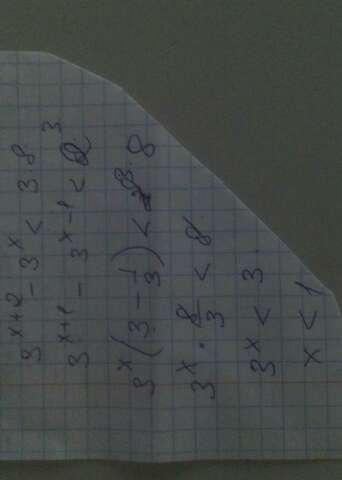 3^{x+2} - 3^x < 38
3^{x+1} - 3^{x-1} < 2^3
3^x (3 - \frac{1}{3}) < 8
3^x \cdot \frac{8}{3} < 8
3^x < 3
x < 1